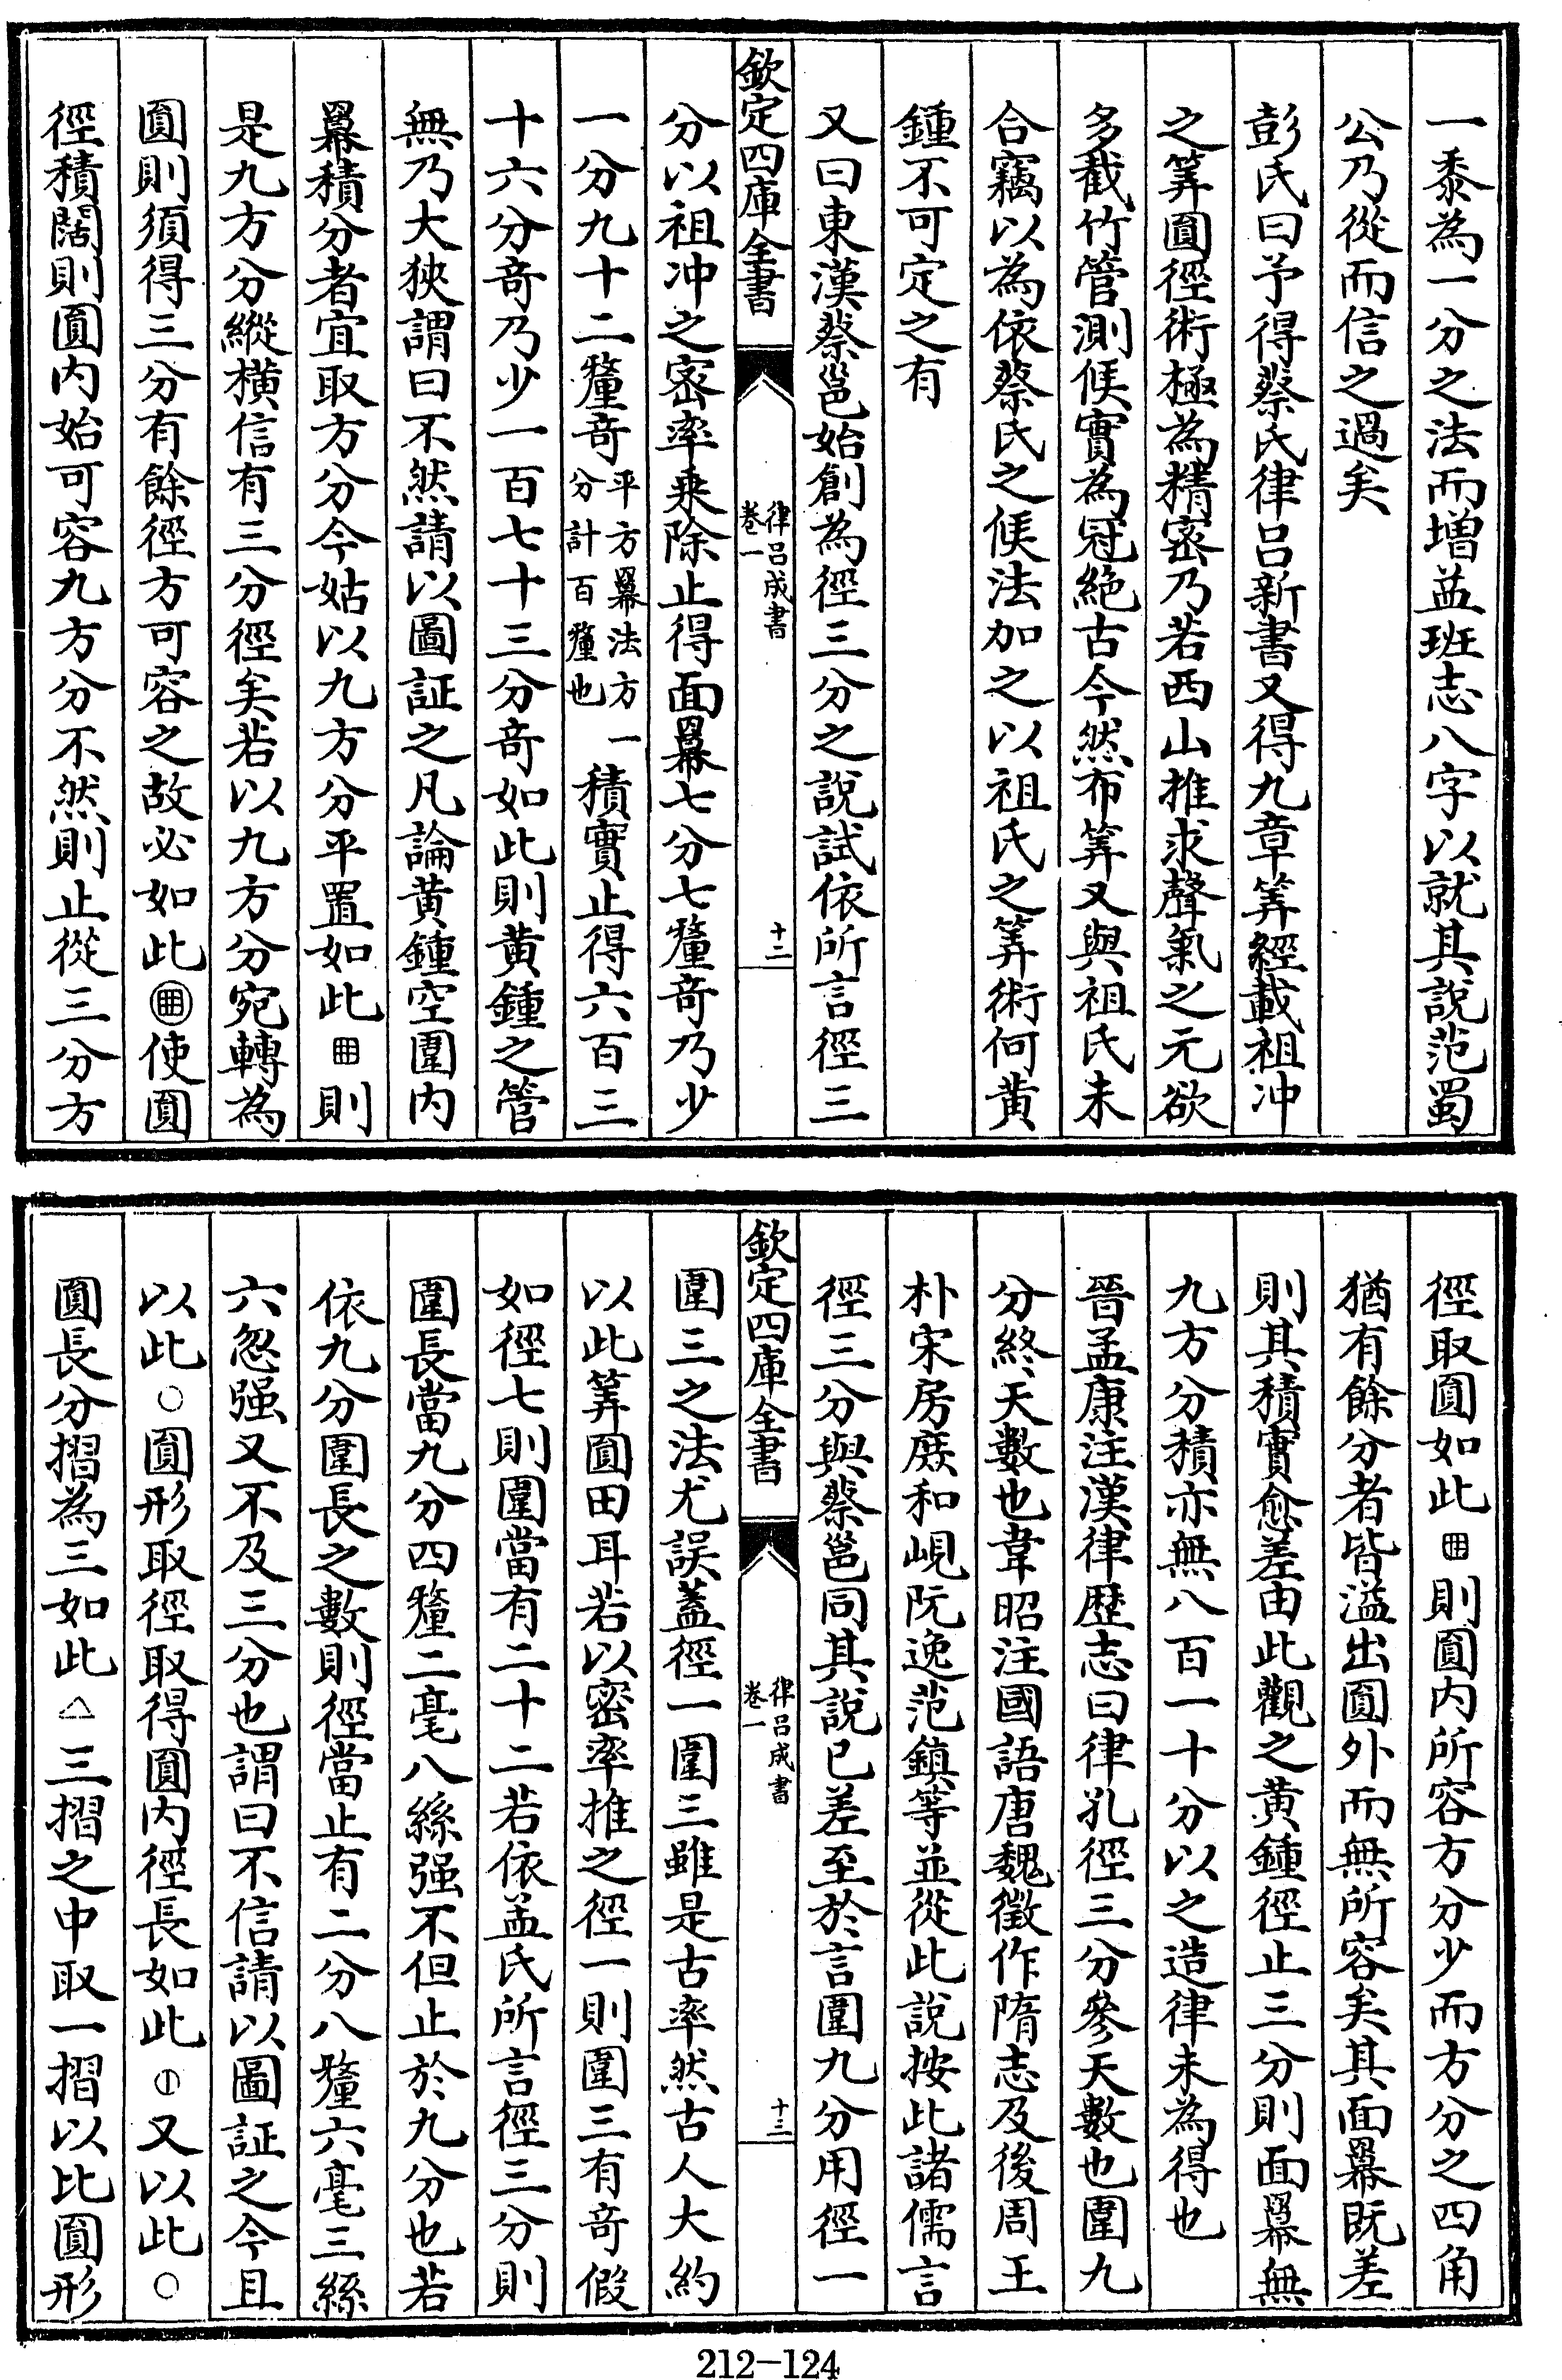 一黍為一分之法而増益班志八字以就其說范蜀
公乃從而信之過矣
彭氏曰予得蔡氏律呂新書又得九章筭經載祖冲
之筭圓徑術極為精宻乃若西山推求聲氣之元欲
多截竹管測候實為冠絶古今然布筭又與祖氏未
合竊以為依蔡氏之候法加之以祖氏之筭術何黄
鍾不可定之有
又曰東漢蔡邕始創為徑三分之說試依所言徑三
欽定四庫全書
律呂成書
卷一
十二
分以祖冲之宻率乗除止得面羃七分七釐竒乃少
一分九十二釐竒平方羃法方一分計百釐也積實止得六百三
十六分竒乃少一百七十三分竒如此則黄鍾之管
無乃大狹謂曰不然請以圖証之凡論黄鍾空圍内
羃積分者宜取方分今姑以九方分平置如此則
是九方分縱横信有三分徑矣若以九方分宛轉為
圓則須得三分有餘徑方可容之故必如此使圓
徑積闊則圓内始可容九方分不然則止從三分方
徑取圓如此則圓内所容方分少而方分之四角
猶有餘分者皆溢出圓外而無所容矣其面羃既差
則其積實愈差由此觀之黄鍾徑止三分則面羃無
九方分積亦無八百一十分以之造律未為得也
晉孟康注漢律歴志曰律孔徑三分參天數也圍九
分終天數也韋昭注國語唐魏徵作隋志及後周王
朴宋房庻和峴阮逸范鎮等並從此說按此諸儒言
徑三分與蔡邕同其說已差至於言圍九分用徑一
欽定四庫全書
律呂成書
卷一
十三
圍三之法尤誤蓋徑一圍三雖是古率然古人大約
以此筭圓田耳若以宻率推之徑一則圍三有竒假
如徑七則圍當有二十二若依孟氏所言徑三分則
圍長當九分四釐二毫八絲强不但止於九分也若
依九分圍長之數則徑當止有二分八釐六毫三絲
六忽强又不及三分也謂曰不信請以圖証之今且
以此○圓形取徑取得圓内徑長如此又以此○
圓長分摺為三如此△三摺之中取一摺以比圓形
212-124